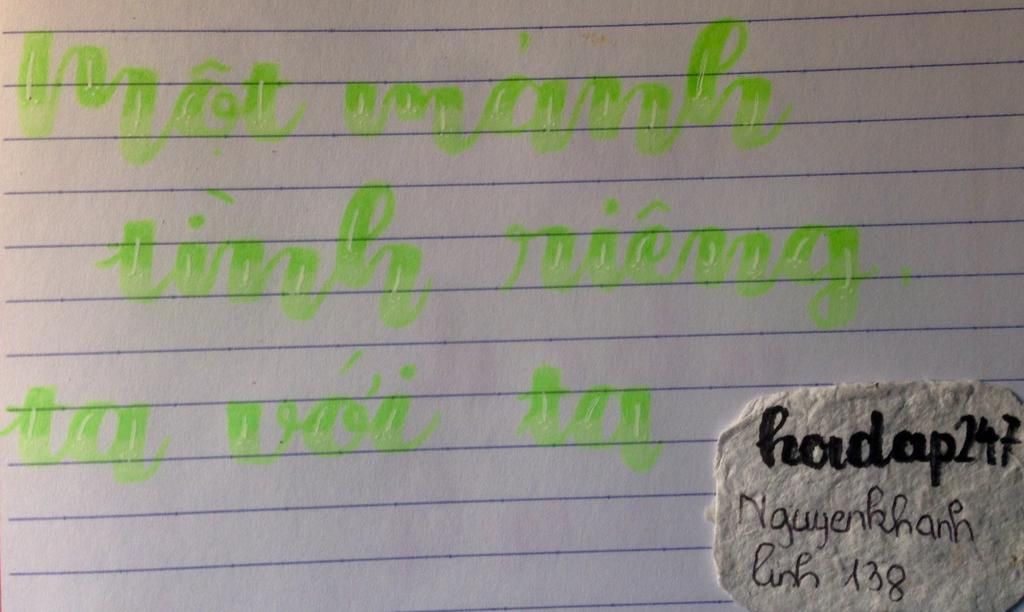 Một mảnh
tình riêng.
ta với ta
hoidap247
Nguyenkhanh
linh 138